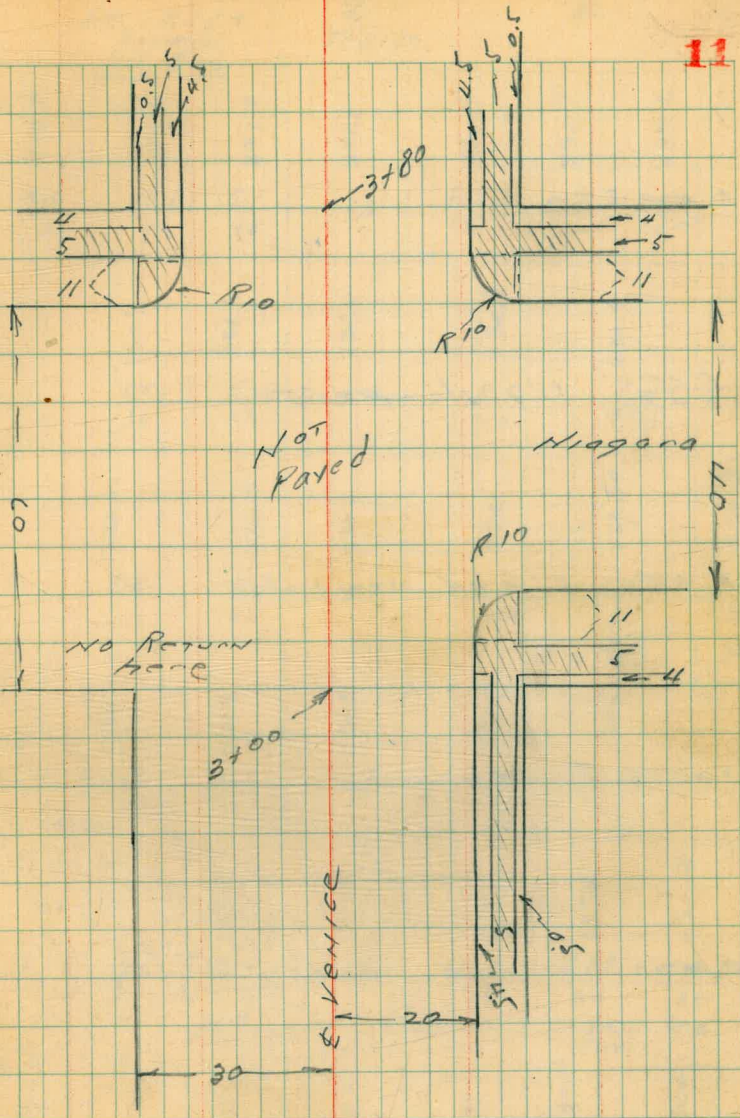 11
0.5
5
4.5
4.5
5
0.5
3+80
4
5
11
R10
4
5
11
R10
Not
Paved
Niagara
40
R10
11
5
4
No Return
here
3+00
℄ Venice
5
4.5
0.5
20
30